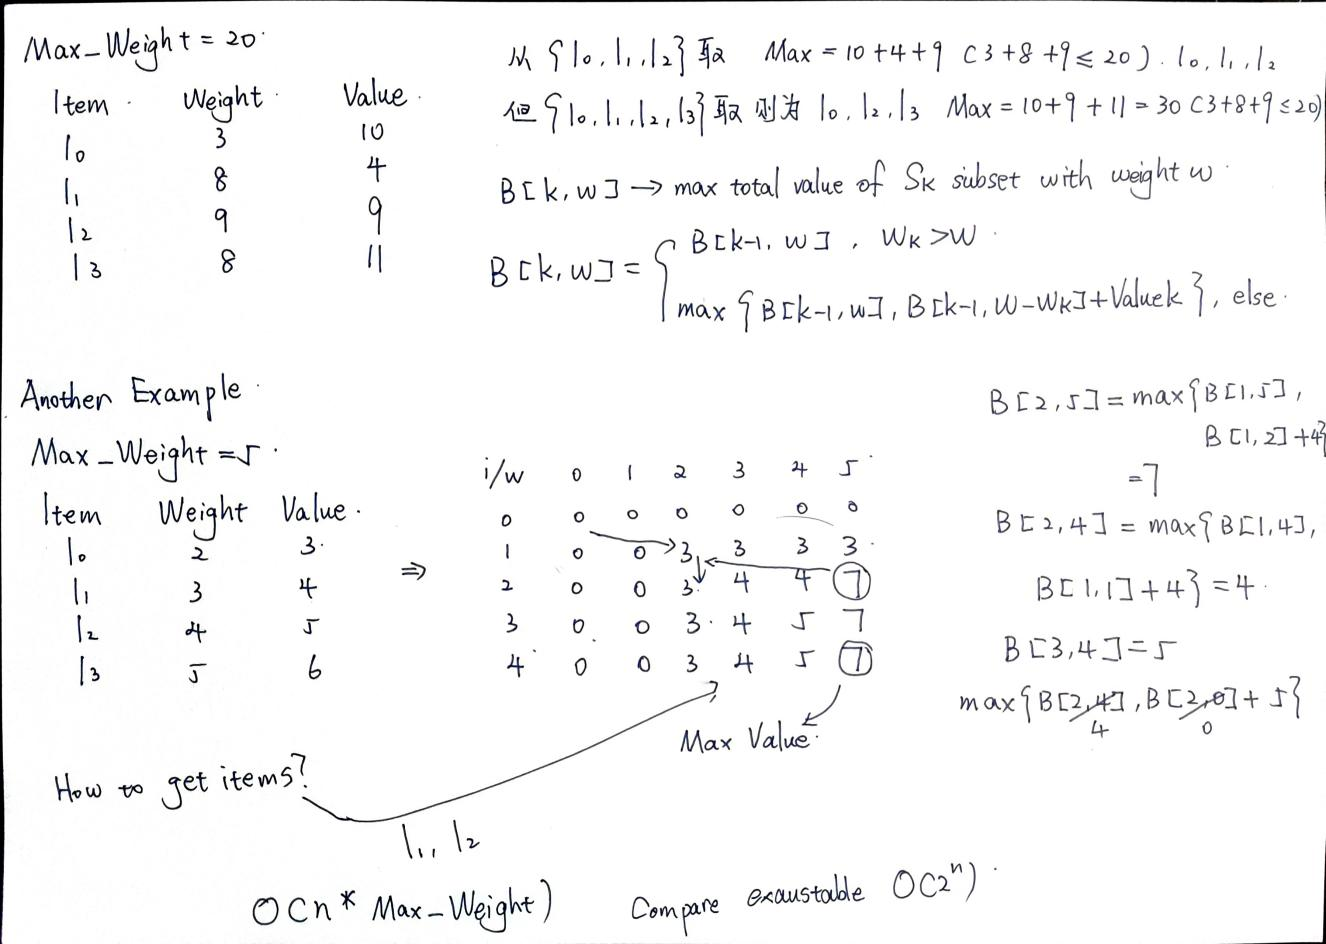 Max_Weight = 20
Item Weight Value
I0 3 10
I1 8 4
I2 9 9
I3 8 11
从 {I0, I1, I2} 取 Max = 10 + 4 + 9 (3 + 8 + 9 ≤ 20). I0, I1, I2
但 {I0, I1, I2, I3} 取 则为 I0, I2, I3 Max = 10 + 9 + 11 = 30 (3+8+9 ≤ 20)
B[k, w] → max total value of Sk subset with weight w
B[k, w] = { B[k-1, w], Wk > W
max { B[k-1, w], B[k-1, W-Wk] + Valuek }, else
Another Example
Max_Weight = 5
Item Weight Value
I0 2 3
I1 3 4
I2 4 5
I3 5 6
⇒
i/w 0 1 2 3 4 5
0 0 0 0 0 0 0
1 0 0 3 3 3 3
2 0 0 3 4 4 7
3 0 0 3 4 5 7
4 0 0 3 4 5 7
Max Value
B[2, 5] = max{B[1, 5],
B[1, 2] + 4}
= 7
B[2, 4] = max{B[1, 4],
B[1, 1] + 4} = 4
B[3, 4] = 5
max{B[2, 4], B[2, 0] + 5}
4 0
How to get items?
I1, I2
O(n * Max_Weight) Compare exaustable O(2^n)